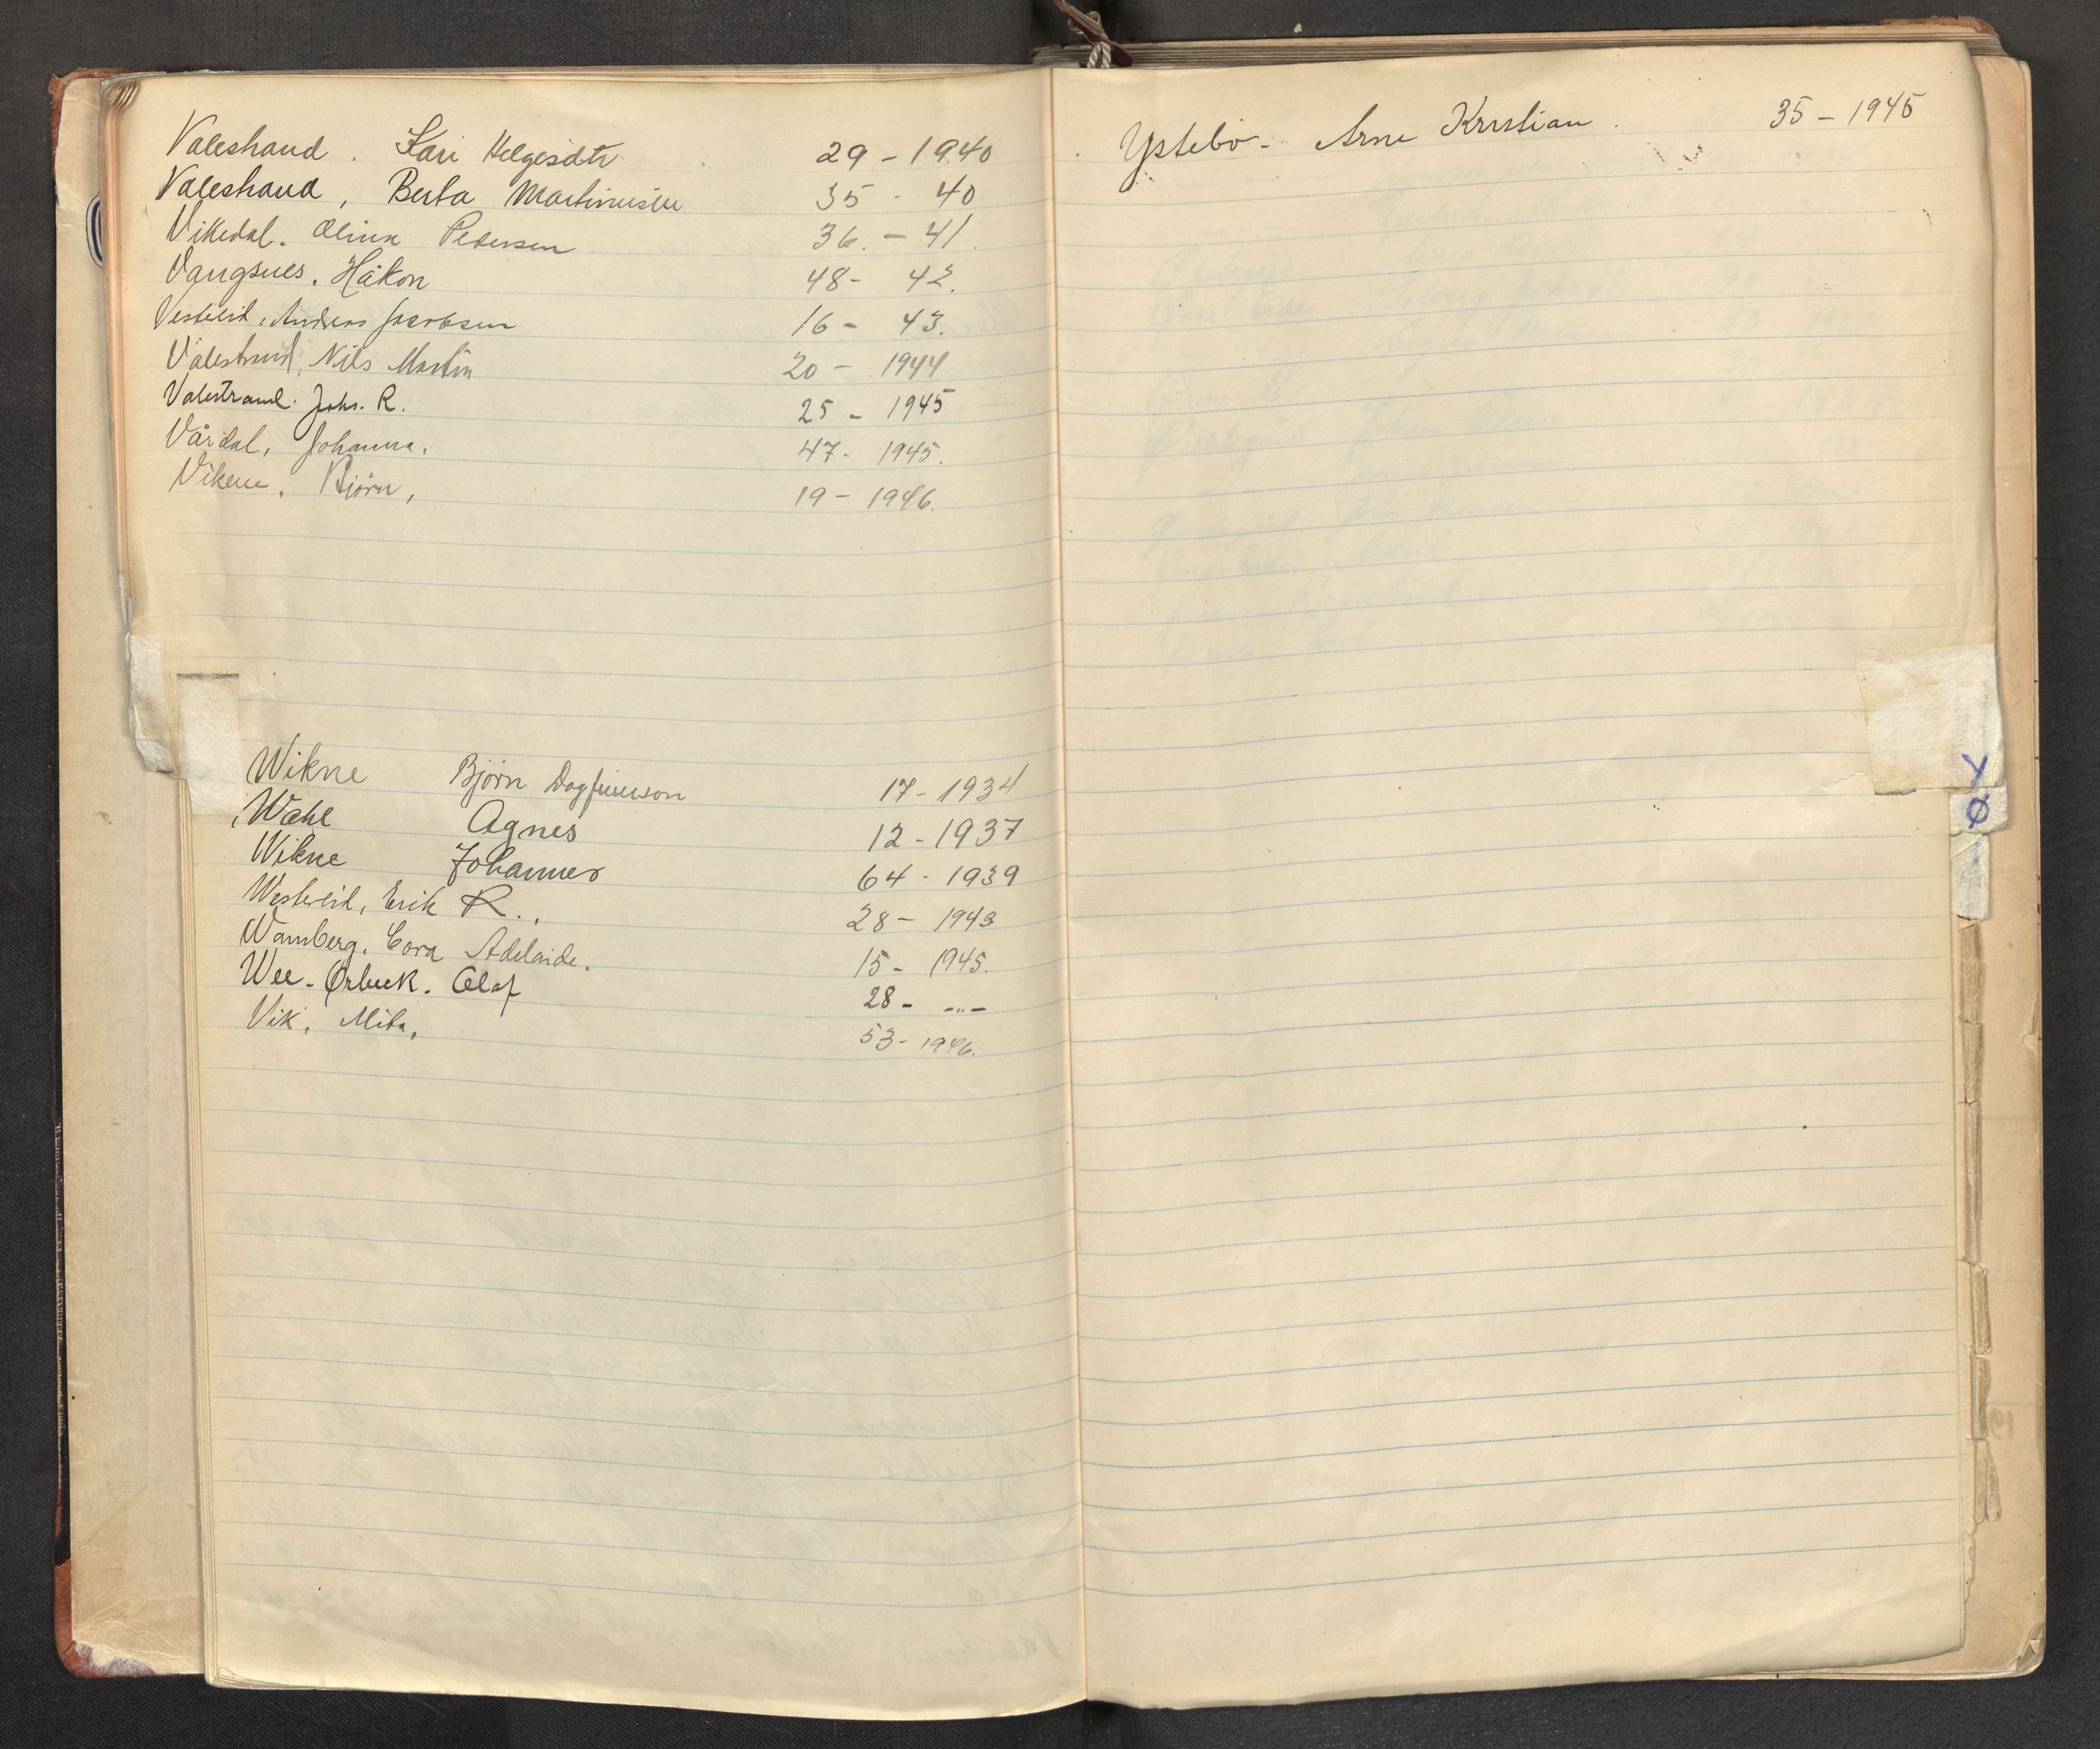 Valestrand. Kari Helgesdtr 29 - 1940
Valestrand, Berta Martinusen 35 - 40
Vikedal. Olina Pedersen 36. - 41.
Vangsnes. Håkon 48 - 42.
Vestlid, Andreas Jacobsen 16 - 43.
Valestrand, Nils Martin 20 - 1944
Valestrand. Johs. R. 25 - 1945
Vårdal, Johanna. 47 - 1945.
Vikene. Bjørn, 19 - 1946.
Wikne Björn Dagfinnson 17 - 1934
Wahl Agnes 12 - 1937
Wikne Johannes 64 - 1939
Erik R. 28 - 1943
Wamberg. Cora Adelaide. 15 - 1945.
Wee - Ørbeck. Olaf 28 - -"-
Vik, Mita, 53 - 1946.
Ystebö - Arne Kristian. 35 - 1945
Y
Ø